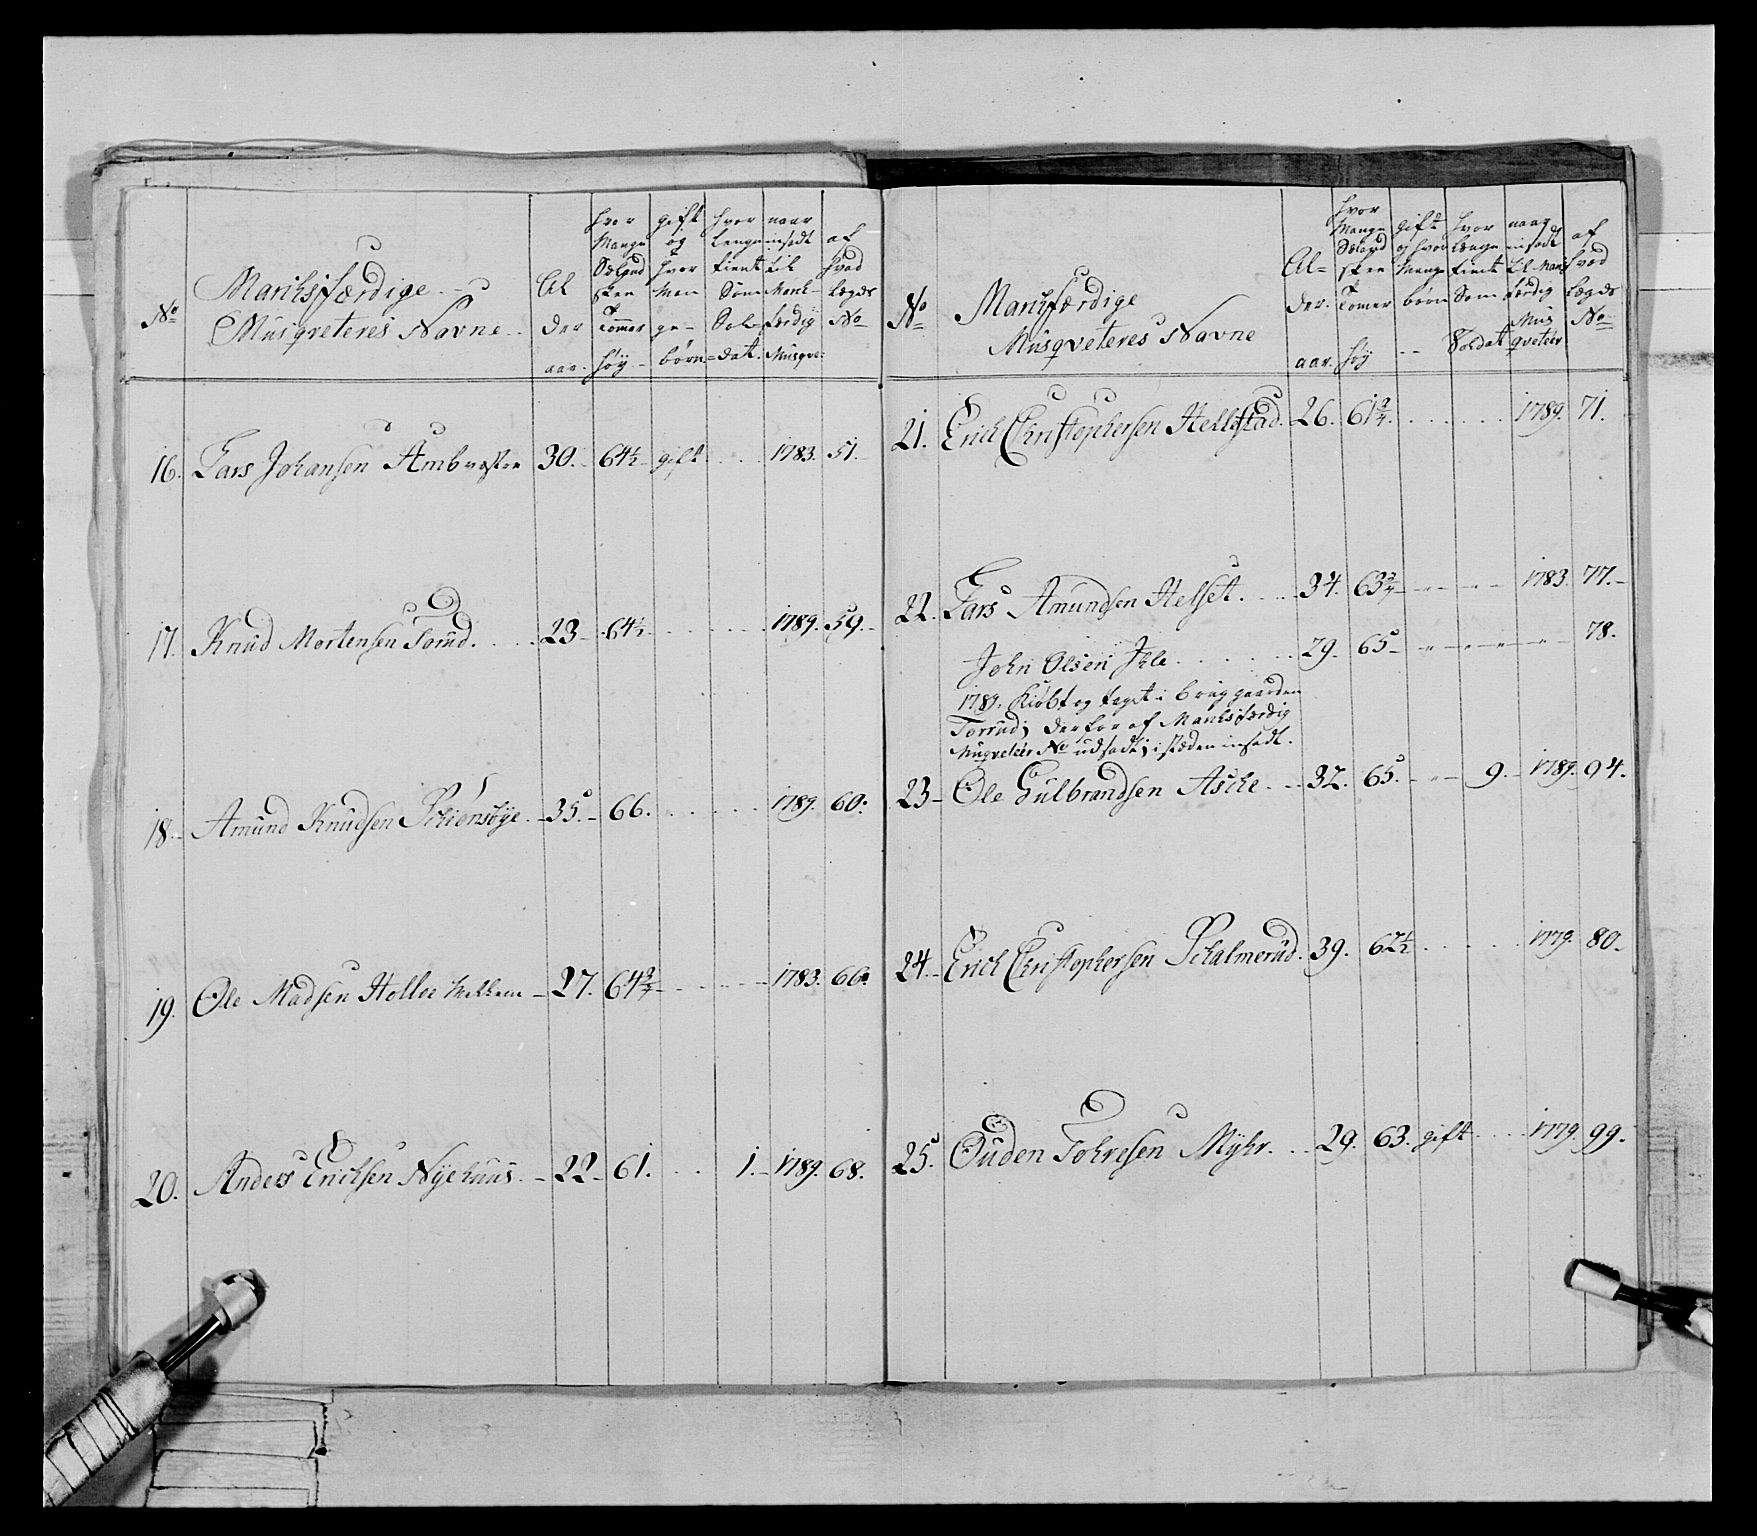 No
Marchsfærdige
Musqveteres Navne
Al
der
aar.
hvor
Mange
Sælgud
sken
Tommer
høy
gift
og
hvor
Man
ge
børn
hvor
lenge
tient
Som
Sol=
dat.
naar
insadt
til
March-
færdig
Musqve:
af
hvad
Legds
No
16. Lars Johansen 30. 64½ gift 1783. 51.
17. Knud Mortensen Torud. 23 64½ 1789. 59.
18. Amund Knudsen Schiensøye. 35. 66. 1789. 60.
19. Ole Madsen Holloe 27. 64¾ 1783. 66.
20. Anders Erichsen Nyehuus. 22 61. 1. 1789. 68.
No
Marchfærdige
Musqveteres Navne
Al=
der.
aar.
hvor
Mange
Sælgud
sken
Tomer
høy
gift
og hvor
Mange
børn
hvor
længe
tient
Som
Soldat
naar
insadt
til March
færdig
Mus
qveteer
af
hvad
Lægds
No
21. Erich Christophersen Hellestad. 26. 61¾. 1789. 71.
22. Lars Amundsen Helset. 34. 63¾ 1783. 77.
John Olsen Ihle 29. 65 78.
1789. Kiøbt og taget i brug gaarden
Torrud; derfor af Marchsfærdig
Musqveteer No udsadt; i stæden insadt.
23 Ole Gulbrandsen Asche 32. 65. 9. 1789. 94.
24. Erich Christophersen Schalmerud. 39. 62½ 1779. 80.
25. Ouden Tohresen Myhr. 29. 63. gift 1779. 99.